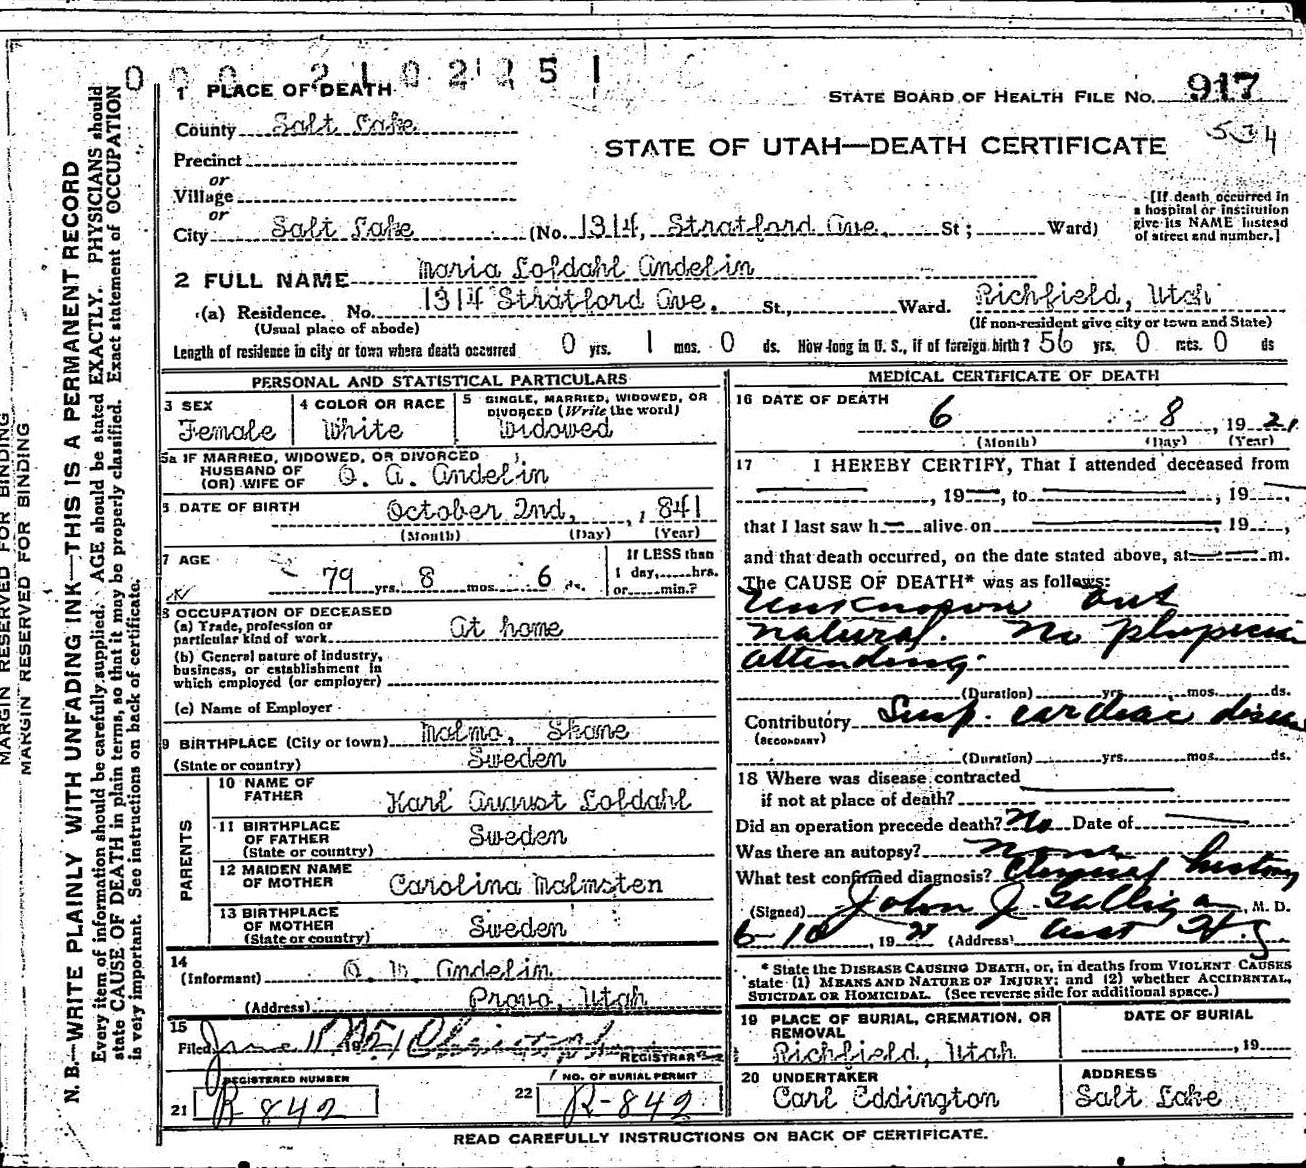 0 0 0 2 1 0 2 2 5 1
1 PLACE OF DEATH
STATE BOARD OF HEALTH FILE NO. 917
County Salt Lake
534
Precinct
STATE OF UTAH—DEATH CERTIFICATE
or
Village
or
City Salt Lake (No. 1314, Stratford Ave. St; Ward)
[If death occurred in
a hospital or institution
give its NAME instead
of street and number.]
2 FULL NAME Maria Lofdahl Andelin
(a) Residence. No. 1314 Stratford Ave. St., Ward. Richfield, Utah
(Usual place of abode) (If non-resident give city or town and State)
Length of residence in city or town where death occurred 0 yrs. 1 mos. 0 ds. How long in U. S., if of foreign birth? 56 yrs. 0 mos. 0 ds
PERSONAL AND STATISTICAL PARTICULARS
3 SEX
Female
4 COLOR OR RACE
White
5 SINGLE, MARRIED, WIDOWED, OR
DIVORCED (Write the word)
Widowed
5a IF MARRIED, WIDOWED, OR DIVORCED
HUSBAND OF
(OR) WIFE OF O. A. Andelin
6 DATE OF BIRTH October 2nd, , 1841
(Month) (Day) (Year)
7 AGE
79 yrs. 8 mos. 6 ds.
If LESS than
1 day,......hrs.
or......min.?
8 OCCUPATION OF DECEASED
(a) Trade, profession or
particular kind of work At home
(b) General nature of industry,
business, or establishment in
which employed (or employer)
(c) Name of Employer
9 BIRTHPLACE (City or town) Malmo, Skane
(State or country) Sweden
PARENTS
10 NAME OF
FATHER Karl August Lofdahl
11 BIRTHPLACE
OF FATHER Sweden
(State or country)
12 MAIDEN NAME
OF MOTHER Carolina Malmsten
13 BIRTHPLACE
OF MOTHER Sweden
(State or country)
14
(Informant) O. Andelin
(Address) Provo, Utah
15
Filed June 19
REGISTRAR
REGISTERED NUMBER
21 R-842
NO. OF BURIAL PERMIT
22 R-842
MEDICAL CERTIFICATE OF DEATH
16 DATE OF DEATH
6 8 , 19 21
(Month) (Day) (Year)
17 I HEREBY CERTIFY, That I attended deceased from
, 19 , to , 19 ,
that I last saw h alive on , 19 ,
and that death occurred, on the date stated above, at m.
The CAUSE OF DEATH* was as follows:
Unknown but
natural. No physician
attending.
(Duration) yrs. mos. ds.
Contributory Susp. cardiac disease
(SECONDARY)
(Duration) yrs. mos. ds.
18 Where was disease contracted
if not at place of death?
Did an operation precede death? No Date of
Was there an autopsy? none
What test confirmed diagnosis? Clinical history
(Signed) John J. Galligan, M. D.
6-10, 19 21 (Address)
* State the DISEASE CAUSING DEATH, or, in deaths from VIOLENT CAUSES
state (1) MEANS AND NATURE OF INJURY; and (2) whether ACCIDENTAL,
SUICIDAL OR HOMICIDAL. (See reverse side for additional space.)
19 PLACE OF BURIAL, CREMATION, OR
REMOVAL
Richfield, Utah
DATE OF BURIAL
, 19
20 UNDERTAKER
Carl Eddington
ADDRESS
Salt Lake
READ CAREFULLY INSTRUCTIONS ON BACK OF CERTIFICATE.
MARGIN RESERVED FOR BINDING
MARGIN RESERVED FOR BINDING
N. B.—WRITE PLAINLY WITH UNFADING INK—THIS IS A PERMANENT RECORD
Every item of information should be carefully supplied. AGE should be stated EXACTLY. PHYSICIANS should
state CAUSE OF DEATH in plain terms, so that it may be properly classified. Exact statement of OCCUPATION
is very important. See instructions on back of certificate.